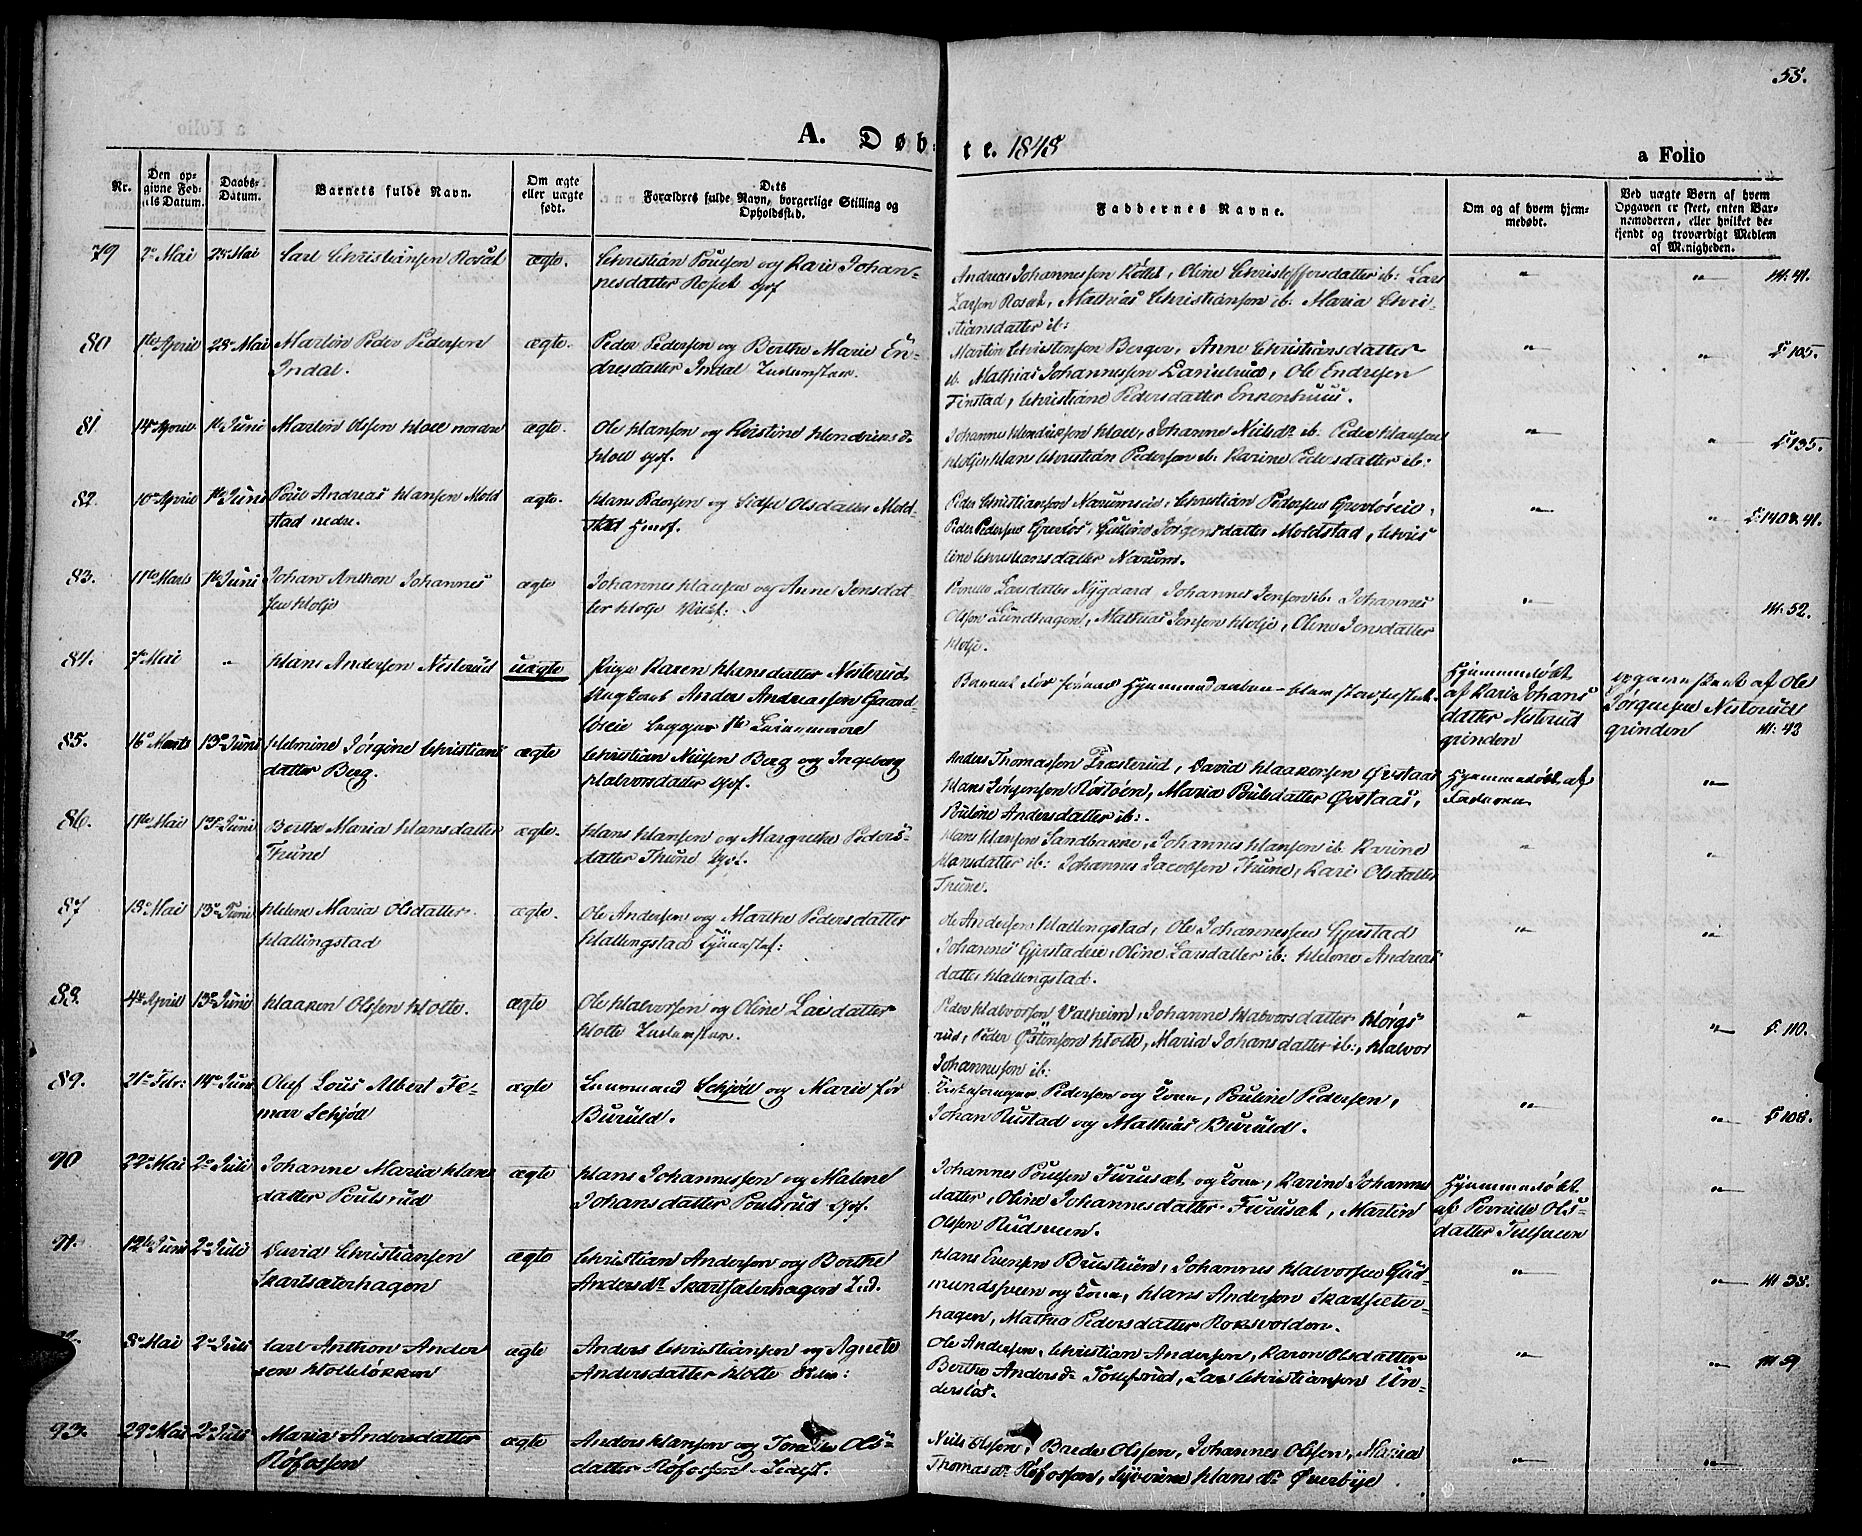 55.
A. Døb-
te. 1848
a Folio
Nr.
Den op-
givne Fød-
sels Datum.
Daabs-
Datum.
Barnets fulde Navn.
Om ægte
eller uægte
født.
Dets
Forældres fulde Navn, borgerlige Stilling og
Opholdssted.
Faddernes Navne.
Om og af hvem hjem-
medøbt.
Ved uægte Børn af hvem
Opgaven er skeet, enten Bar-
nemoderen, eller hvilket be-
kjendt og troværdigt Medlem
af Menigheden.
79 2den Mai 28de Mai Carl Christiansen Rosæt ægte. Christian Poulsen og Kari Johan-
nesdatter Rosæt
Andreas Johannessen Kölet, Oline Christoffersdatter ib: Lars
Larsen Rosæt, Mathias Christiansen ib: Maria Chri-
stiansdatter ib:
" " M. 41.
80 1ste April 28de Mai Martin Peder Pedersen
Indal.
ægte. Peder Pedersen og Berthe Marie En-
dresdatter Indal
Martin Christensen Berger, Anne Christiansdatter
ib. Mathias Johannessen Ole Endresen
Finstad, Christiane Pedersdatter
" " F 105.
81 14de April 1ste Juni Martin Olsen Hoel nordre ægte. Ole Hansen og Kristine Hendriksd.
Hoel
Johannes Hendriksen Hoel, Johanne Nielsdr ib. Peder Hansen
Holje, Hans Christian Pedersen ib. Karine Pedersdatter ib:
" " F 135.
82. 10de April 1ste Juni Poul Andreas Hansen Mold
stad nedre.
ægte. Hans Larsen og Sidsel Olsdatter Mold-
stad
Peder Christiansen Narumseie, Christian Pedersen Grevlöseie,
Peder Pedersen Grevlös, Gulline Jörgensdatter Moldstad, Chris
tine Christiansdatter Narum.
" " F. 140 & 41.
83. 11te Marts 1ste Juni Johan Anthon Johannes
sen Holje
ægte Johannes Hansen og Anne Jensdat
ter Holje
Pernille Larsdatter Nygaard Johannes Jensen ib. Johannes
Olsen Lundhagen, Mathias Jensen Holje, Oline Jensdatter
Holje.
" M. 52.
84. 7de Mai " Hans Andersen Nesterud uægte Pige Karen Hansdatter Nesterud.
Ungkarl Anders Andreassen
Barnet döde
Hjemmedöbt
af Kari Johans
datter Nesterud
grinden
opgaven skeet af Ole
Jörgensen Nesterud
grinden M: 43
85. 16de Marts 13de Juni Helmine Jörgine Christians
datter Berg.
ægte Christian Nilsen Berg og Ingeborg
Halvorsdatter
Anders Thomassen Frasterud, David Haakensen Övstaas
Hans Jörgensen Röstöen, Maria Poulsdatter Övstaas,
Pouline Andersdatter ib:.
Hjemmedöbt af
Faderen
"
86. 11te Mai 13de Juni Berthe Maria Hansdatter
Thune
ægte. Hans Hansen og Margrethe Peders-
datter Thune
Hans Hansen Sandbakke, Johannes Hansen ib Karine
Hansdatter ib: Johannes Jacobsen Thune, Kari Olsdatter
Thune.
" "
87 13de Mai 13de Juni Helene Maria Olsdatter
Hallingstad
ægte. Ole Andersen og Marthe Pedersdatter
Hallingstad
Ole Andersen Hallingstad, Ole Johannessen Gjerstad
Johannes Gjerstadeie, Oline Larsdatter ib: Helene Andreas
datter Hallingstad.
" "
88. 4de April 13de Juni Haaken Olsen Hotte. ægte Ole Halvorsen og Oline Larsdatter
Hotte
Peder Halvorsen Valheim, Johanne Halvorsdatter
rud, Peder Östensen Hotte, Maria Johansdatter ib:, Halvor
Johannesen ib:
" " F. 110.
89. 21de Febr: 14de Juni Oluf Louis Albert Te-
mar Schjöll
ægte Schjöll og Marie för
Buruld.
Pedersen og Kone, Pouline Pedersen,
Johan Rustad og Mathias Buruld.
" " F 108.
90 22de Mai 2den Juli Johanne Maria Hans
datter Poulsrud
ægte Hans Johannessen og Malene
Johansdatter Poulsrud
Johannes Poulsen Furusæt og Kone, Karine Johannes
datter, Oline Johannesdatter Furusæt, Martin
Olsen Rudsveen.
Hjemmedöbt
af Pernille Ols-
datter
"
91. 12te Juni 2den Juli David Christiansen
Skartsæterhagen
ægte Christian Andersen og Berthe
Andersdr Skartsæterhagen
Hans Evensen Johannes Halvorsen Gud-
mundsveen og Kone, Hans Andersen Skartsæter-
hagen, Mathea Pedersdatter Roksvolden.
" " M 38.
8de Mai 2den Juli Carl Anthon Ander
sen Hottelökken
ægte Anders Christiansen og Agnete
Andersdatter Hotte
Ole Andersen, Christian Andersen, Karen Olsdatter
Berthe Andersdr Tollefsrud, Lars Christiansen Un-
" " M 59
93. 29de Mai 2den Juli Maria Andersdatter
Röfossen
ægte Anders Hansen og Ols-
datter Röfossen
Niels Olsen, Olsen, Johannes Olsen, Maria
Thomasdr Röfossen, Hansdr Överbye.
" "